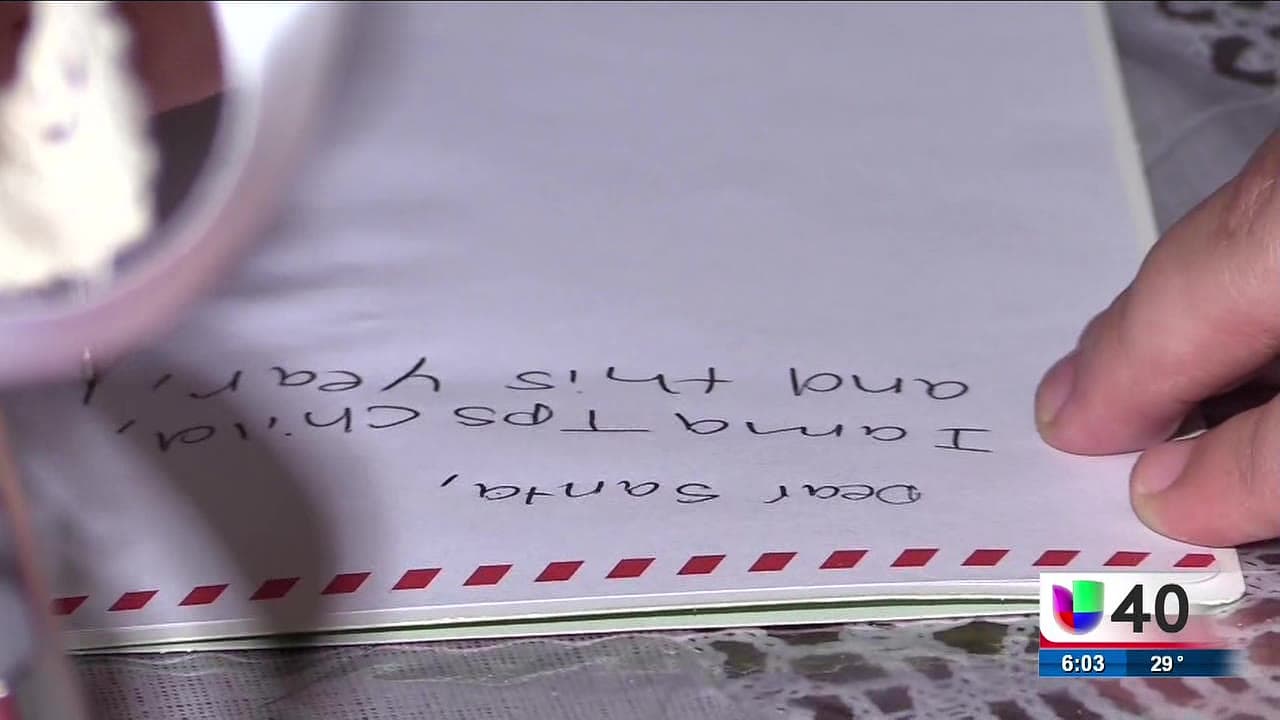 Dear Santa,
I am a Tps child,
and this year,
40
6:03 29°